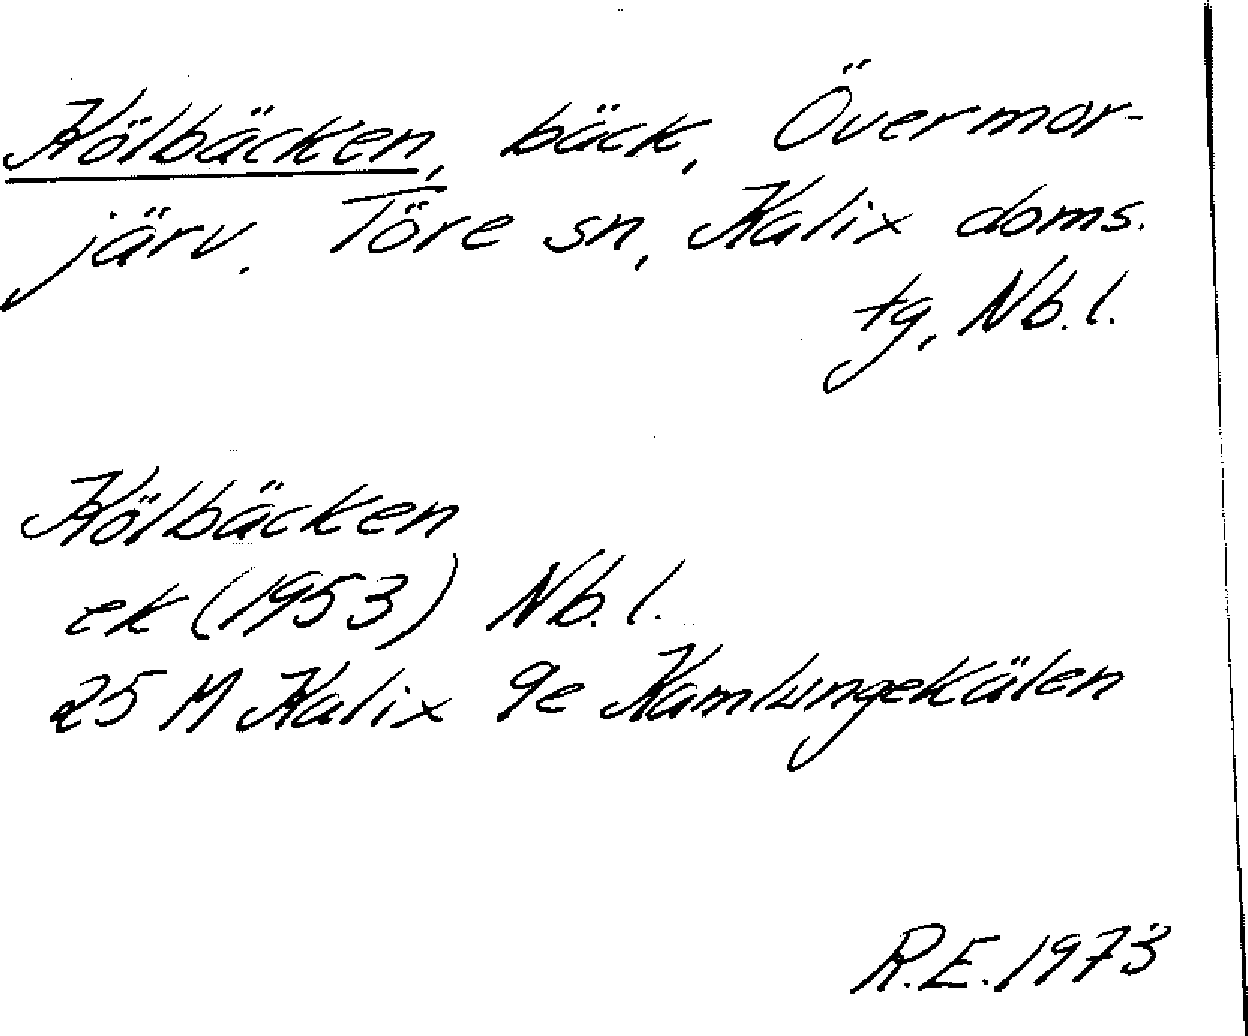 Kölbäcken, bäck, Övermor-
järv. Töre sn, Kalix doms.
tg, Nb.l.
Kölbäcken
ek (1953) Nb.l.
25 M Kalix 9e Kamlungekälen
R.E. 1973